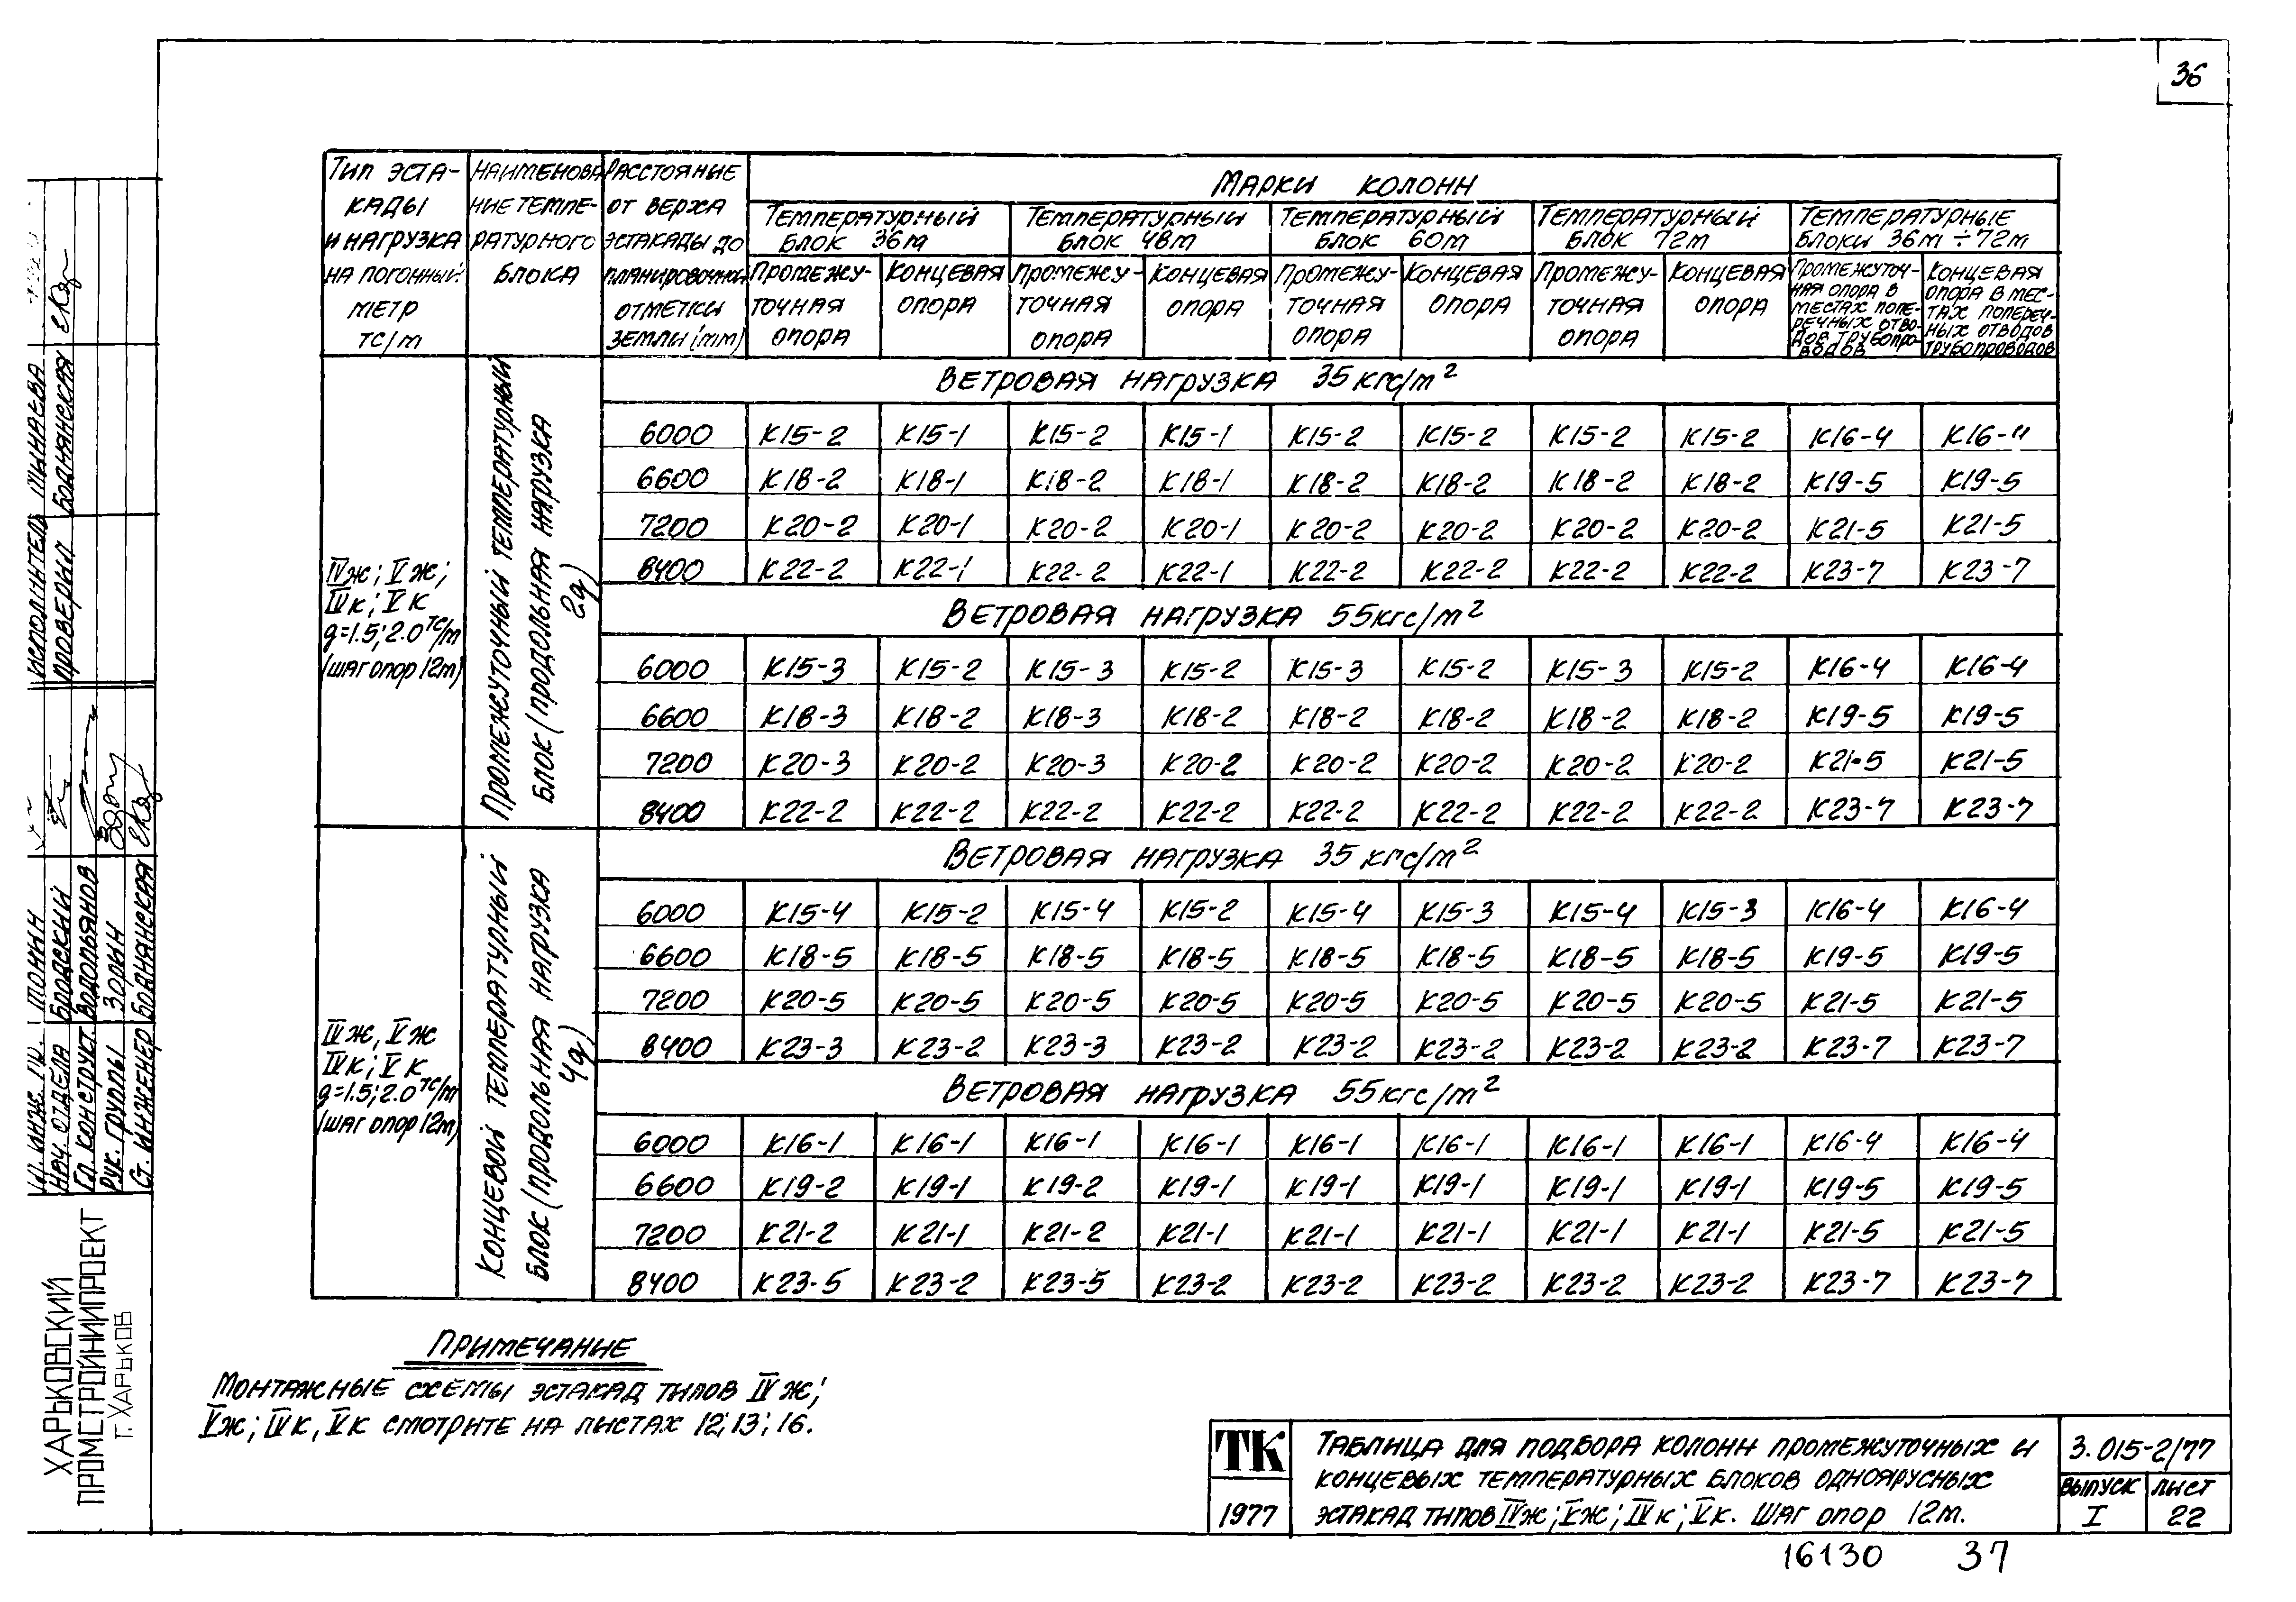 36
Тип эстакады и нагрузка на погонный метр тс/м
Наименование температурного блока
Расстояние от верха эстакады до планировочной отметки земли (мм)
Марки колонн
Температурный блок 36м
Температурный блок 48м
Температурный блок 60м
Температурный блок 72м
Температурные блоки 36м ÷ 72м
Промежуточная опора
Концевая опора
Промежуточная опора
Концевая опора
Промежуточная опора
Концевая опора
Промежуточная опора
Концевая опора
Промежуточная опора в местах поперечных отводов трубопроводов
Концевая опора в местах поперечных отводов трубопроводов
IVж; Vж;
IVк; Vк
q=1.5; 2.0 тс/м
(шаг опор 12м)
Промежуточный температурный
блок (продольная нагрузка
2q)
Ветровая нагрузка 35 кгс/м²
6000 К15-2 К15-1 К15-2 К15-1 К15-2 К15-2 К15-2 К15-2 К16-4 К16-4
6600 К18-2 К18-1 К18-2 К18-1 К18-2 К18-2 К18-2 К18-2 К19-5 К19-5
7200 К20-2 К20-1 К20-2 К20-1 К20-2 К20-2 К20-2 К20-2 К21-5 К21-5
8400 К22-2 К22-1 К22-2 К22-1 К22-2 К22-2 К22-2 К22-2 К23-7 К23-7
Ветровая нагрузка 55 кгс/м²
6000 К15-3 К15-2 К15-3 К15-2 К15-3 К15-2 К15-3 К15-2 К16-4 К16-4
6600 К18-3 К18-2 К18-3 К18-2 К18-2 К18-2 К18-2 К18-2 К19-5 К19-5
7200 К20-3 К20-2 К20-3 К20-2 К20-2 К20-2 К20-2 К20-2 К21-5 К21-5
8400 К22-2 К22-2 К22-2 К22-2 К22-2 К22-2 К22-2 К22-2 К23-7 К23-7
IVж, Vж
IVк; Vк
q=1.5; 2.0 тс/м
(шаг опор 12м)
Концевой температурный
блок (продольная нагрузка
4q)
Ветровая нагрузка 35 кгс/м²
6000 К15-4 К15-2 К15-4 К15-2 К15-4 К15-3 К15-4 К15-3 К16-4 К16-4
6600 К18-5 К18-5 К18-5 К18-5 К18-5 К18-5 К18-5 К18-5 К19-5 К19-5
7200 К20-5 К20-5 К20-5 К20-5 К20-5 К20-5 К20-5 К20-5 К21-5 К21-5
8400 К23-3 К23-2 К23-3 К23-2 К23-2 К23-2 К23-2 К23-2 К23-7 К23-7
Ветровая нагрузка 55 кгс/м²
6000 К16-1 К16-1 К16-1 К16-1 К16-1 К16-1 К16-1 К16-1 К16-4 К16-4
6600 К19-2 К19-1 К19-2 К19-1 К19-1 К19-1 К19-1 К19-1 К19-5 К19-5
7200 К21-2 К21-1 К21-2 К21-1 К21-1 К21-1 К21-1 К21-1 К21-5 К21-5
8400 К23-5 К23-2 К23-5 К23-2 К23-2 К23-2 К23-2 К23-2 К23-7 К23-7
Примечание
Монтажные схемы эстакад типов IVж;
Vж; IVк, Vк смотрите на листах 12; 13; 16.
ТК
1977
Таблица для подбора колонн промежуточных и
концевых температурных блоков одноярусных
эстакад типов IVж; Vж; IVк; Vк. Шаг опор 12м.
3.015-2/77
выпуск лист
I 22
16130 37
Исполнитель Минаева
Проверил Боднянская
Гл. инж. пр. Тонин
Нач. отдела Бродский
Гл. конструкт. Водопьянов
Рук. группы Зорин
Ст. инженер Боднянская
Харьковский
Промстройниипроект
г. Харьков